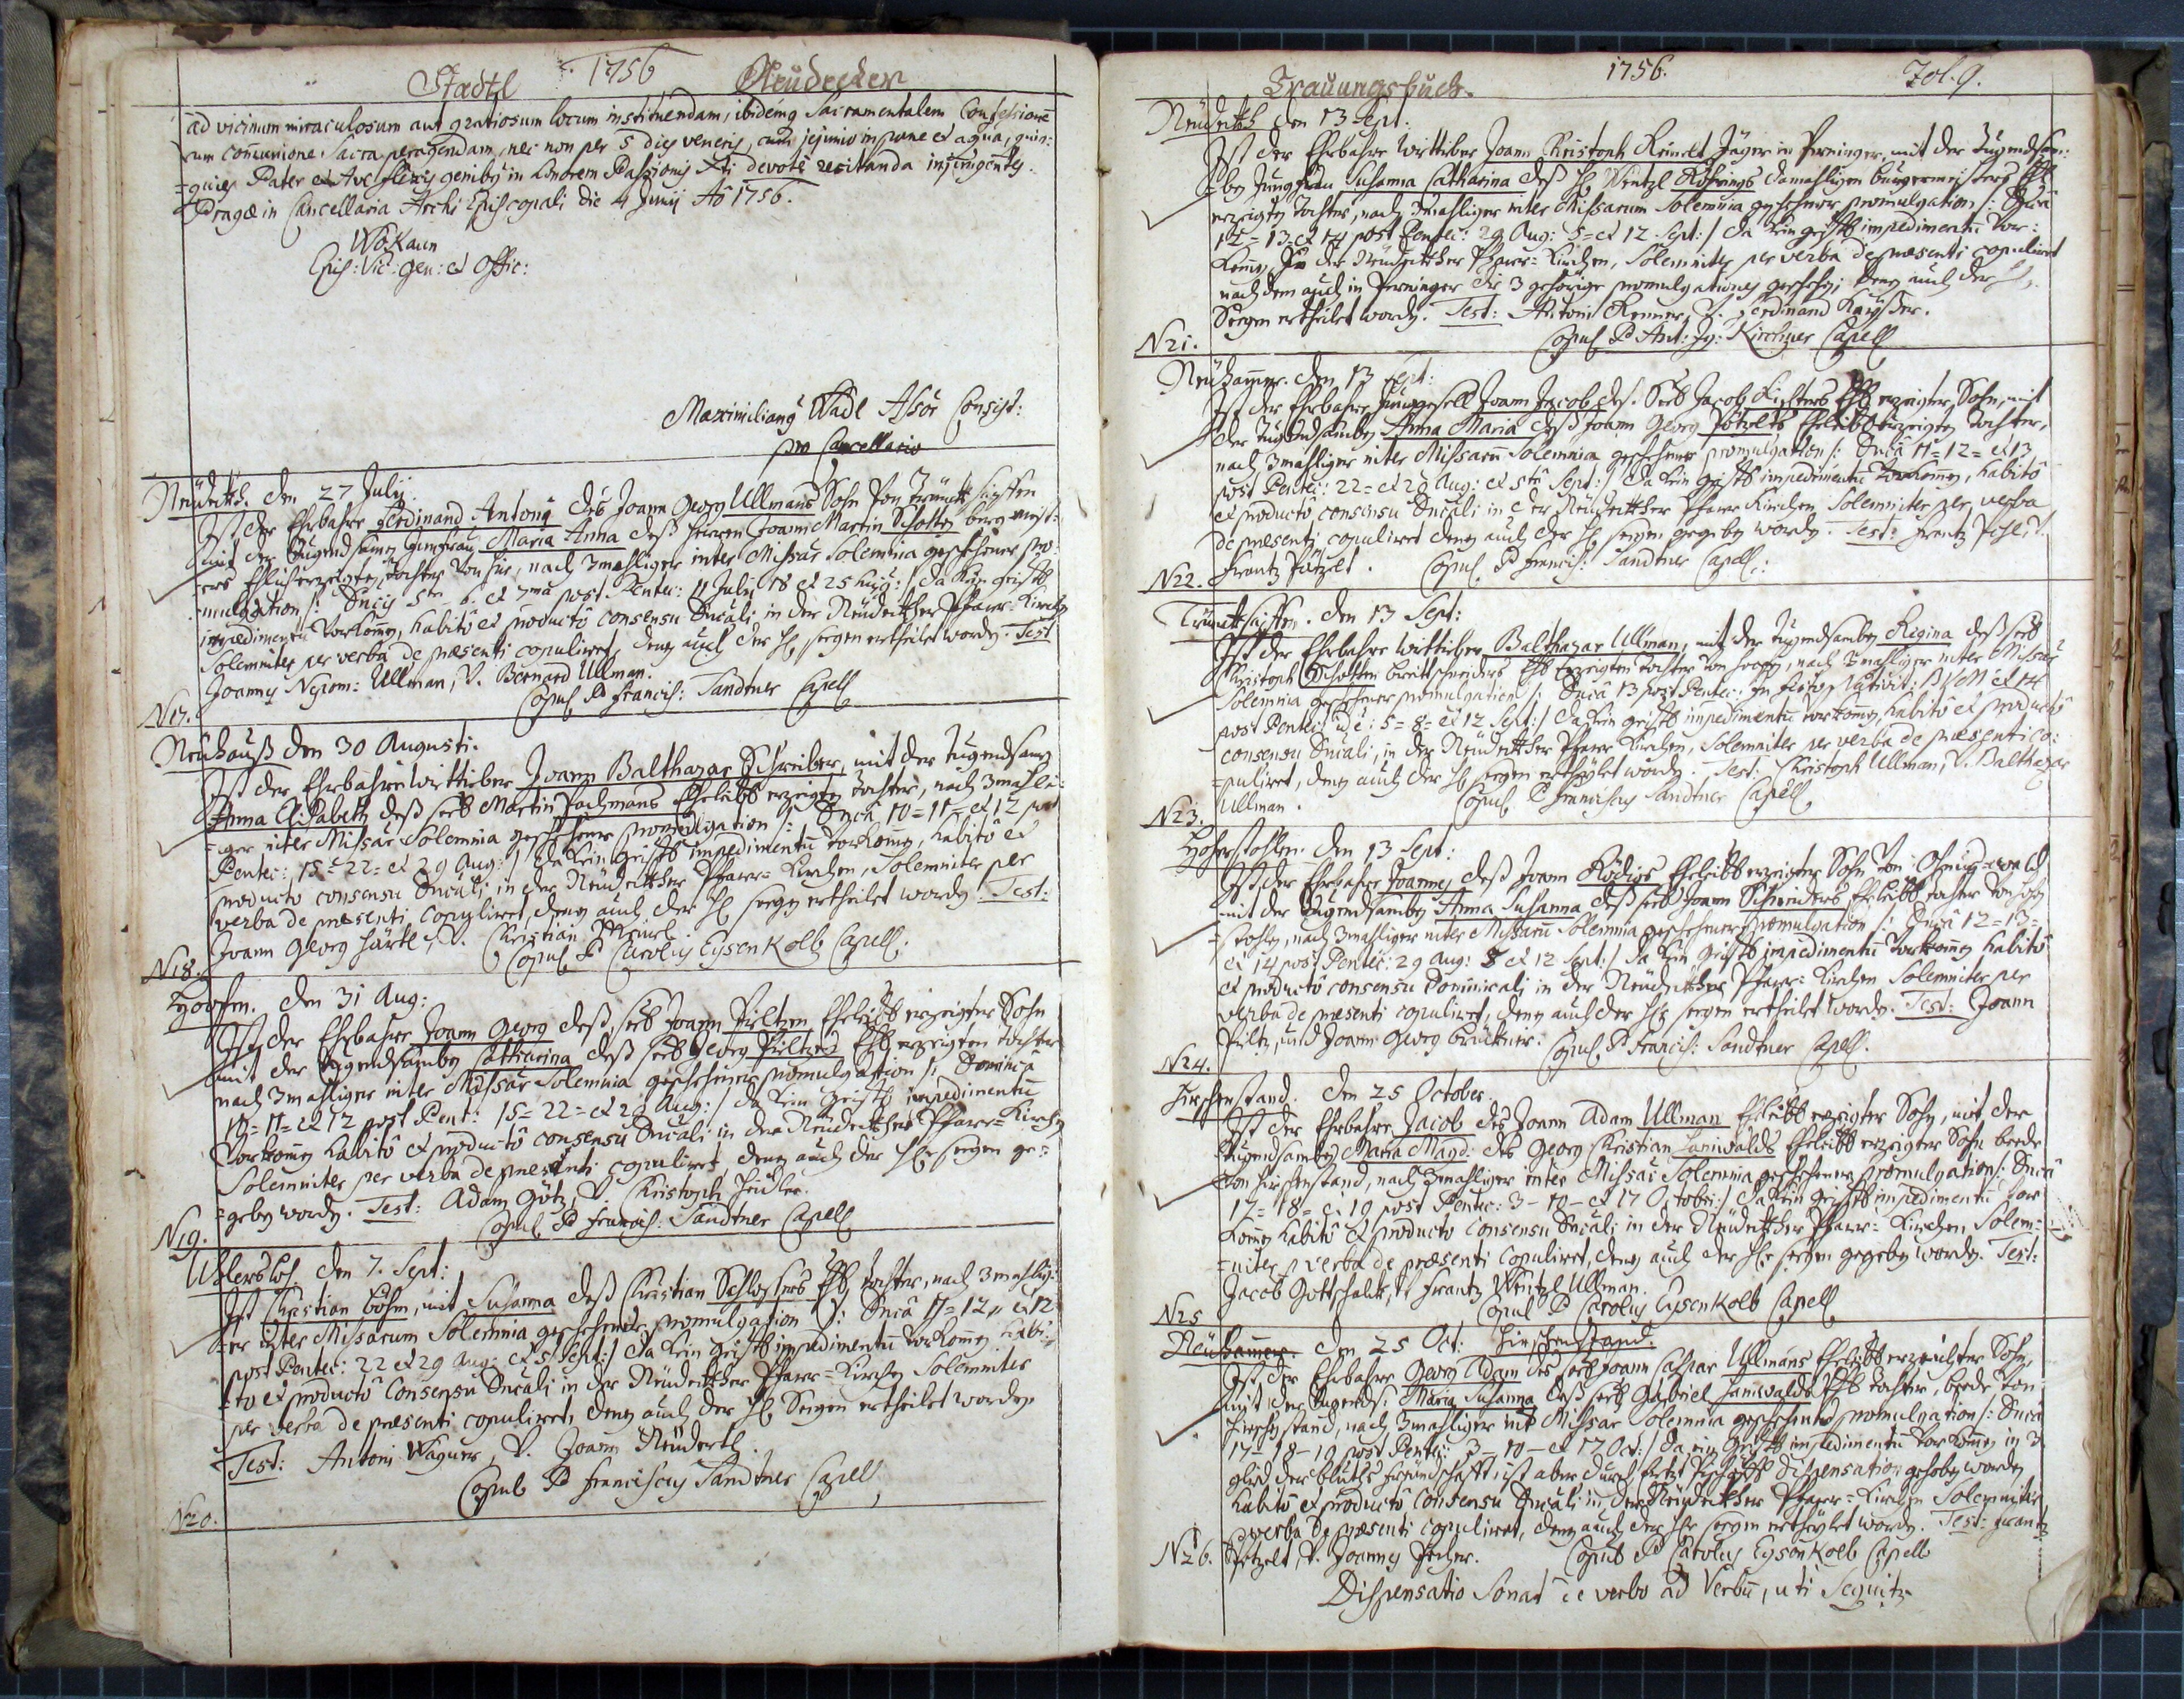 Stadtl 1756 Neudecker
ad vicinum miraculosum aut gratiosum locum instituendam, ibidemq Sacramentalem Confessionē
cum com̄unione Sacra peragendam, nec non per 5 dies veneris, cum jejunio in pane et aqua, quin-
=quies Pater et Ave flexis genibus in honorem Passionis Xti devote recitanda injungentes.
Pragæ in Cancellaria Archi Episcopali die 4 Junij Aō 1756.
Wokaun
Epis: Vic: gen: et Offic:
Maximilianus Wadl Assor Consist:
pro Cancellario
Neudeckh. den 27 July.
Ist der Ehrbahre Ferdinand Antoni des Joann Georg Ullmans Sohn von
mit der Tugendsamen Jungfrau Maria Anna deß Herren Joann Martin Schotten berg meist-
ers Ehlich erzeigten Tochter von hier, nach 3mahliger inter Missar Solemnia geschehener pro-
mulgation /: Dncis 5ta 6. et 7ma post Pentec: 11 July 18 et 25 :/ da kein geistl
impedimentū vorkom̄en, habitô et productô consensu Dncali in der Neudeckher Pfarr-Kirchen
Solemniter per verba de præsenti copuliret, deneg auch der hl seegen ertheilet worden. Test
Joannes Nepom: Ullman, V. Bernard Ullman.
Copul P francis: Sandtner Capell
N 17.
Neuhauß den 30 Augusti.
Ist der Ehrbahre Wittiber Joann Balthazar Schreiber, mit der Tugendsamen
Anna Elisabeth deß seel Martin Pachmans Eheleibl erzeigten Tochter, nach 3mahli-
=ger inter Missar Solemnia geschehener promulgation /: Dncâ 10=11= et 12 post
Pentec: 15=22= et 29 Aug: :/ da kein geistl impedimentū vorkom̄en, habitô et
producto consensu Dncali in der Neudeckher Pfarr=Kirchen, Solemniter per
verba de præsenti copuliret, denen auch der hl seegen ertheilet worden. Test:
Joann Georg Härtl, V. Christian
Copul P Carolus Eysenkolb Capell:
N 18.
den 31 Aug:
Ist der Ehrbahre Joann Georg deß seel Joann Piltzen Eheleibl erzeigter Sohn
mit der Tugendsamben Catharina deß seel Georg Piltzens Ehl erzeigten Tochter
nach 3mahliger inter Missar Solemnia geschehener promulgation /: Dominicâ
10=11= et 12 post Pent: 15=22= et 29 Aug: :/ da kein geistl impedimentū
vorkom̄en habitô et productô consensu Dncali in der Neudeckher Pfarr=Kirchen
Solemniter per verba de præsenti copuliret, denen auch der hl seegen ge=
=geben worden. Test: Adam Götz, V. Christoph
Copul P francis: Sandtner Capell
N 19.
den 7. Sept:
Ist Christian Böhm, mit Susanna deß Christian Schlossers Ehl Tochter, nach 3mahlig-
=er inter Missarum Solemnia geschehener promulgation /: Dncâ 11=12 et 12
post Pentec: 22 et 29 Aug: et 5 Sept: :/ da kein geistl impedimentū vorkom̄en habi-
=to et productô consensu Dncali in der Neudeckher Pfarr=Kirchen Solemniter
per verba de præsenti copuliret, denen auch der hl Seegen ertheilet worden
Test: Antoni Wagner, V. Joann Neudertl.
Copul P Franciscus Sandtner Capell
N 20.
Trauungsbuch. 1756. Fol. 9.
Neudeckh den 13 Sept:
Ist der Ehrbahre Wittiber Joann Christoph Reindel Jäger in Perninger, mit der Tugendsam-
=ben Jungfrau Susanna Catharina deß H Wentzl damahligen burgermeisters Ehl
erzeigten Tochter, nach 3mahliger inter Missarum Solemnia geschehener promulgation /: Dncâ
12=13= et 14 post Pentec: 29 Aug: 5= et 12 Sept: :/ da kein geistl impedimentū vor-
kom̄en, In der Neudeckher Pfarr=Kirchen, Solemniter per verba de præsenti copuliret
nach dem auch in Perninger die 3 gehörige promulgationes geschehen; denen auch der hl
Seegen ertheilet worden. Test: Antoni Renner, V. Ferdinand
Copul P Ant: Ig: Kirchner Capell
N 21.
Neuham̄er. den 13 Sept:
Ist der Ehrbahre Junggesell Joann Jacob, deß Seel Jacob Richters Ehl erzeigter Sohn, mit
der Tugendsamben Anna Maria deß Joann Georg Pötzelts Eheleibl erzeigten Tochter,
nach 3mahliger inter Missarū Solemnia geschehener promulgation /: Dncâ 11=12= et 13
post Pentec: 22= et 29 Aug: et 5tē Sept: :/ da kein geistl impedimentū vorkom̄en, habitô
et productô consensu Dncali in der Neudeckher Pfarr Kirchen Solemniter per verba
de præsenti copuliret denen auch der hl seegen gegeben worden. Test: Frantz V.
Frantz Pötzelt. Copul P francis: Sandtner Capell:
N 22.
den 13 Sept:
Ist der Ehrbahre Wittiber Balthazar Ullman, mit der Tugendsamben Regina deß seel
Christoph Schotten brettschneiders Ehl erzeigten Tochter von, nach 3mahliger inter Missar
Solemnia geschehener promulgation /: Dncâ 13 post Pentec: In festo Nativit: BVM et 14
post Pentec: id ē: 5=8= et 12 Sept: :/ da kein geistl impedimentū vorkom̄en, habitô et productô
consensu Dncali, in der Neudeckher Pfarr Kirchen, Solemniter per verba de præsenti co-
=puliret, denen auch der hl seegen ertheylet worden. Test: Christoph Ullman, V. Balthazar
Ullman. Copul P Franciscus Sandtner Capell
N 23.
Hohenstollen. den 13 Sept:
Ist der Ehrbahre Joannes deß Joann Rödigs Eheleibl erzeigter Sohn von
mit der Tugendsamben Anna Susanna deß seel Joann Schneiders Eheleibl Tochter von hohen
=stollen, nach 3mahliger inter Missarū Solemnia geschehener promulgation /: Dncâ 12=13=
et 14 post Pentec: 29 Aug: 5 et 12 Sept: :/ da kein geistl impedimentū vorkom̄en habitô
et productô consensu Dominicali in der Neudeckher Pfarr=Kirchen Solemniter per
verba de præsenti copuliret, denen auch der hl seegen ertheilet worden. Test: Joann
Piltz, und Joann Georg Brückner. Copul P Francis: Sandtner Capell.
N 24.
Hirschenstand. den 25 October.
Ist der Ehrbahre Jacob des Joann Adam Ullman Eheleibl erzeigter Sohn, mit der
Tugendsamben Maria Magd: des Georg Christian Lanwalds Eheleibl erzeigter Sohn beede
von Hirschenstand, nach 3mahliger inter Missar Solemnia geschehener promulgation /: Dncâ
17=18= et 19 post Pentec: 3-10- et 17 Octobr: :/ da kein geistl impedimentū vor
kom̄en habitô et producto consensu Dncali in der Neudeckher Pfarr=Kirchen Solem-
=niter p verba de præsenti copuliret, denen auch der hl seegen gegeben worden. Test:
Jacob Gottschalk, V. Frantz Wentzl Ullman.
Copul P Carolus Eysenkolb Capell
N 25
Neuham̄er. den 25 Oct: Hirschenstand.
Ist der Ehrbahre Georg Adam des seel Joann Caspar Ullmans Eheleibl erzeigter Sohn,
mit der Tugends: Maria Susanna deß seel Gabriel Lanwalds Ehl Tochter, beede von
Hirschenstand, nach 3mahliger int Missar Solemnia geschehener promulgation /: Dncâ
17-18-19 post Pentec: 3-10- et 17 Oct: :/ da ein geistl impedimentū vorkom̄en in 3
glied der bluths freundschafft, ist aber durch dispensation gehoben worden
habitô et productô consensu Dncali in der Neudeckher Pfarr=Kirchen Solemniter
p verba de præsenti copuliret, denen auch der hl seegen ertheylet worden. Test: Frantz
Pötzelt, V. Joannes. Copul P Carolus Eysenkolb Capell
N 26.
Dispensatio Sonat de verbo ad Verbū, uti Sequitr